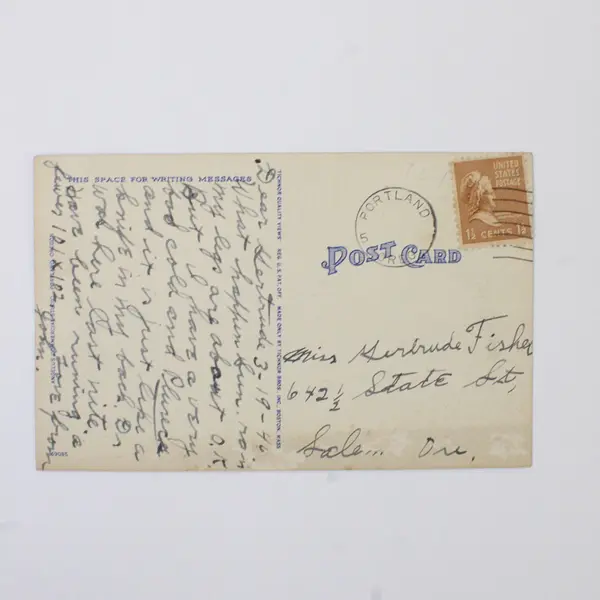 THIS SPACE FOR WRITING MESSAGES
Dear Gertrude 3-9-46
What happen hun.
my legs are about O.K.
But I have a very
bad cold and
and it is just like a
knife in my back. Dr
was here last nite.
Have been running a
fever 101 x 102
Love from
TICHNOR QUALITY VIEWS REG. U.S. PAT. OFF. MADE ONLY BY TICHNOR BROS., INC., BOSTON, MASS.
UNITED
STATES
POSTAGE
1½ CENTS 1½
PORTLAND
POST CARD
Miss Gertrude Fisher
642 ½ State St,
Salem Ore.